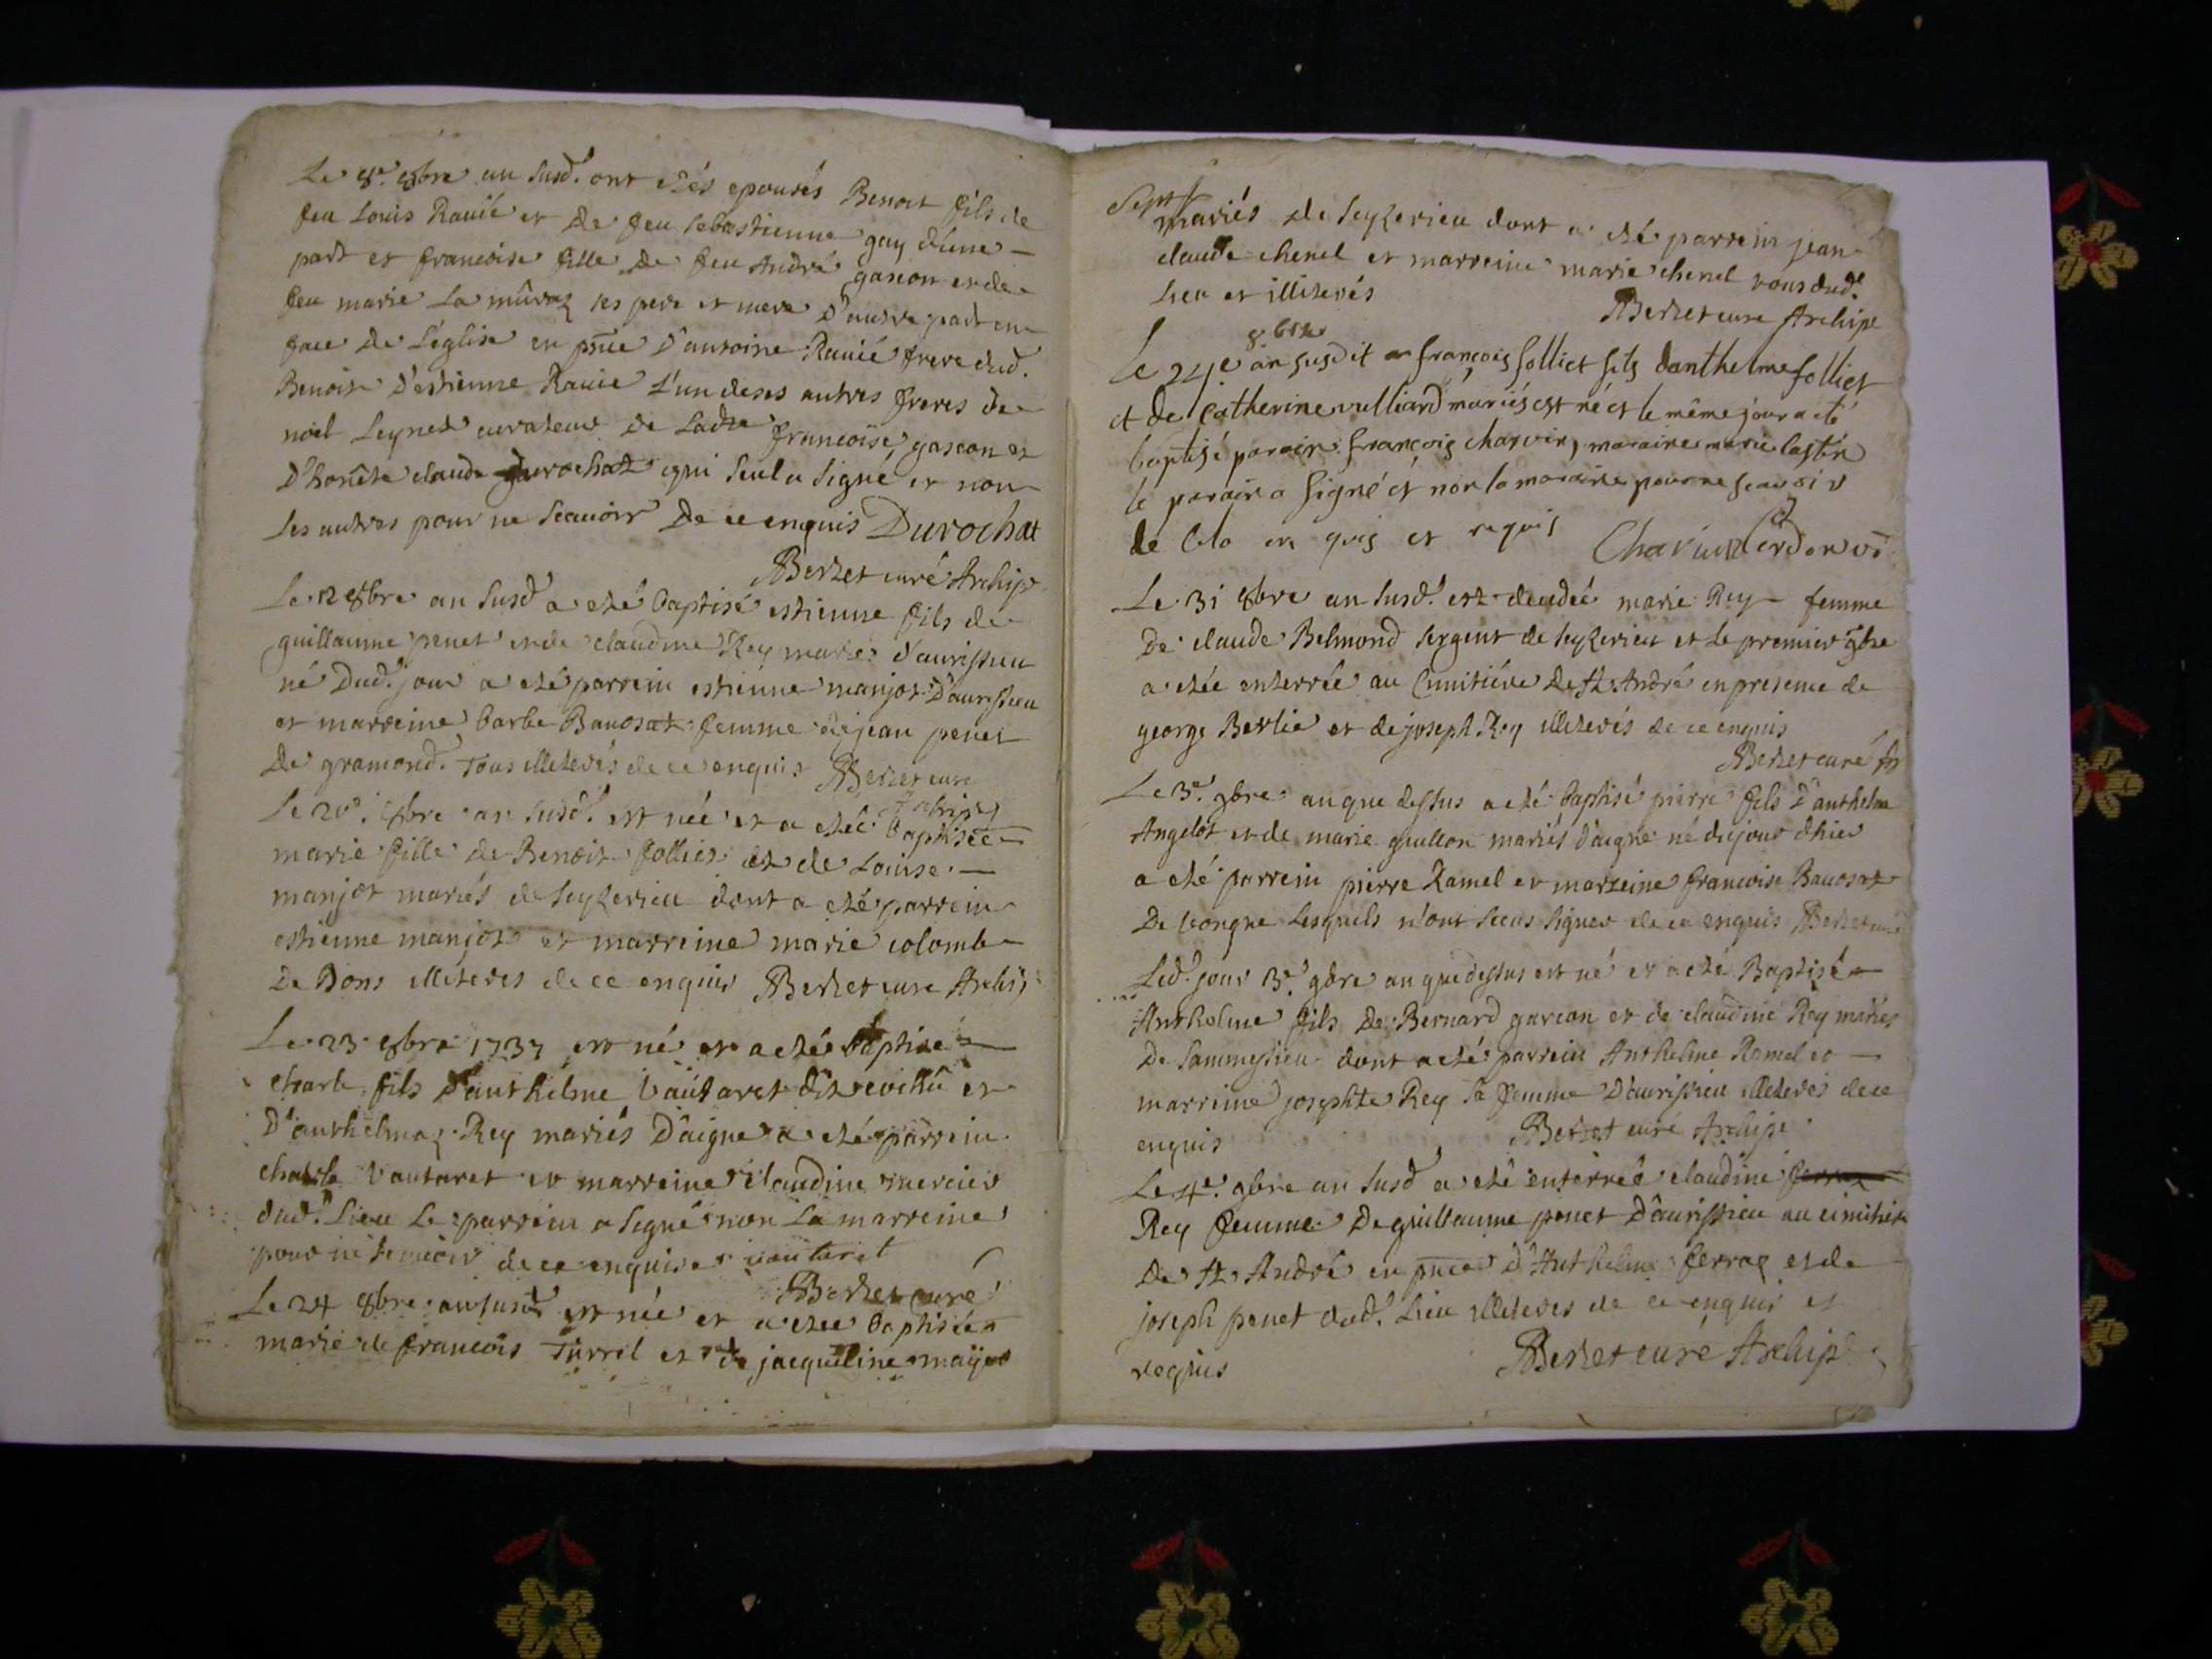 Le 8e. 8bre an susd. ont etés epousés Benoit fils de
feu Louis Ravié et de feu Sebastienne gay d'une
part et francoise fille de feu André gascon et de
feu marie La mûraz ses pere et mere d'autre part en
face de L'église en pnce d'antoine Ravié frere dud.
Benoit d'estienne Ravié l'un de ses autres freres de
noël Seynet curateur de Ladte francoise gascon et
d'honête claude durochat qui seul a signé et non
les autres pour ne scavoir de ce enquis Durochat
Berzet curé Archip
Le 12 8bre an susd a eté baptisé estienne fils de
guillaume penet et de claudine Rey mariés d'aurissieu
né dud. jour a eté parrein estienne manjot d'aurissieu
et marreine barbe Bavosat femme de jean penet
de gramond. Tous illiterés de ce enquis Berzet cure
Archip
Le 20e. 8bre an susd. est née et a etée baptisée
marie fille de Benoit folliet et de Louise
manjot mariés de Seyzerieu dont a eté parrein
estienne manjot et marreine marie colomb
de Dons illiteres de ce enquis Berzet cure Archip
Le 23 8bre 1737 est né et a eté baptisé
charle fils d'anthelme vautaret dit et
D'anthelmaz Rey mariés D'aigne a eté parrein
charle vautaret et marreine claudine mercier
dud. Lieu Le parrein a signé non La marreine
pour ne scavoir de ce enquise vautaret
Berzet curé
Le 24 8bre an susd est née et a etée baptisée
marie de francois Turrel et de jacqueline mayet
Sept
mariés de Seyzerieu dont a eté parrein jean
claude chenel et marreine marie chenel tous dud.
Lieu et illiterés
Berzet cure Archip
8.bre
Le 24e an susdit françois folliet fils danthelme folliet
et de Catherine vulliard mariés est né et le même jour a eté
baptisé parain françois charvin, maraine marie castin
le parain a signé et non la maraine pour ne scavoir
de cela en quis et requis Charvin Cerdon vi
Le 31 8bre an susd. est decedée marie Rey femme
de claude Belmond sergent de Seyzerieu et le premier 9bre
a etée enterrée au cimitiére de St André en presence de
george Berlie et de joseph Rey illiterés de ce enquis
Berzet curé Ar
Le 3e. 9bre an que dessus a eté baptisé pierre fils d'anthelme
Angelot et de marie guillon mariés d'aigne né du jour d'hier
a eté parrein pierre Ramel et marreine francoise Bavosat
de Ceongne Lesquels n'ont sceus signer de ce enquis Berzet curé
Led. jour 3e. 9bre an que dessus est né et a eté Baptisé
Anthelme fils de Bernard garcon et de claudine Rey mariés
de Sammeyrieu dont a eté parrein Anthelme Ramel et
marreine josephte Rey sa femme d'aurissieu illiterés de ce
enquis Berzet curé Archip
Le 4e. 9bre an susd a eté enterreé claudine
Rey femme de guillaume penet d'aurissieu au cimitiere
de St. André en pnce d'Anthelme ferraz et de
joseph penet dud. Lieu illiteres de ce enquis et
requis Berzet curé Archip